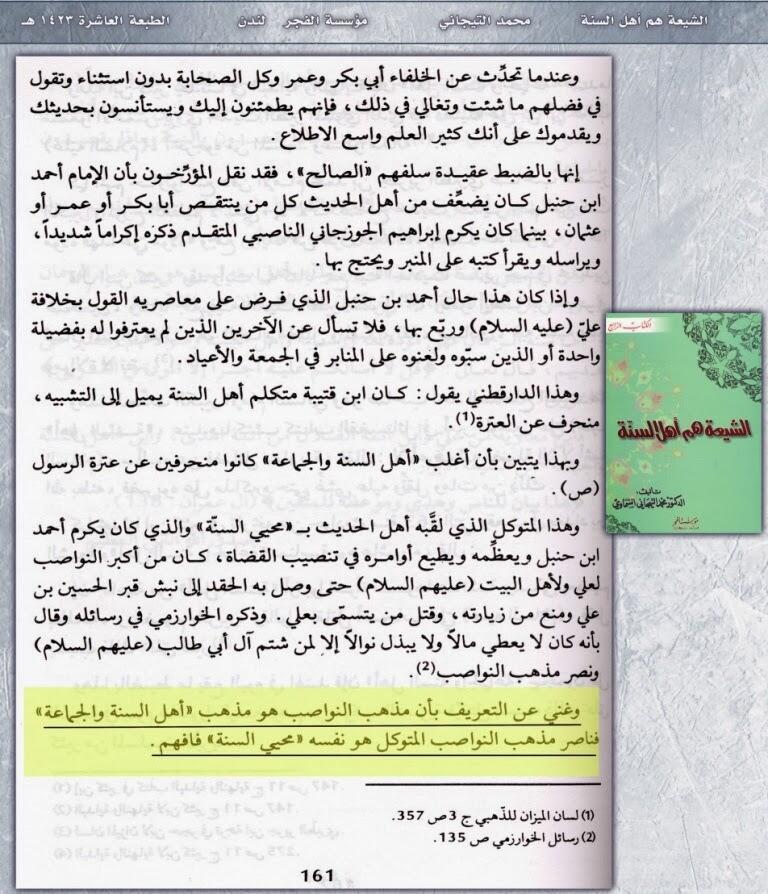 الشيعة هم أهل السنة محمد التيجاني مؤسسة الفجر لندن الطبعة العاشرة ١٤٢٣ هـ
وعندما تحدِّث عن الخلفاء أبي بكر وعمر وكل الصحابة بدون استثناء وتقول
في فضلهم ما شئت وتغالي في ذلك، فإنهم يطمئنون إليك ويستأنسون بحديثك
ويقدموك على أنك كثير العلم واسع الاطلاع.
إنها بالضبط عقيدة سلفهم «الصالح»، فقد نقل المؤرّخون بأن الإمام أحمد
ابن حنبل كان يضعِّف من أهل الحديث كل من ينتقص أبا بكر أو عمر أو
عثمان، بينما كان يكرم إبراهيم الجوزجاني الناصبي المتقدم ذكره إكراماً شديداً،
ويراسله ويقرأ كتبه على المنبر ويحتج بها.
وإذا كان هذا حال أحمد بن حنبل الذي فرض على معاصريه القول بخلافة
عليّ (عليه السلام) وربّع بها، فلا تسأل عن الآخرين الذين لم يعترفوا له بفضيلة
واحدة أو الذين سبّوه ولعنوه على المنابر في الجمعة والأعياد.
وهذا الدارقطني يقول: كان ابن قتيبة متكلم أهل السنة يميل إلى التشبيه،
منحرف عن العترة(1).
وبهذا يتبين بأن أغلب «أهل السنة والجماعة» كانوا منحرفين عن عترة الرسول
(ص).
وهذا المتوكل الذي لقّبه أهل الحديث بـ «محيي السنّة» والذي كان يكرم أحمد
ابن حنبل ويعظّمه ويطيع أوامره في تنصيب القضاة، كان من أكبر النواصب
لعلي ولأهل البيت (عليهم السلام) حتى وصل به الحقد إلى نبش قبر الحسين بن
علي ومنع من زيارته، وقتل من يتسمّى بعلي. وذكره الخوارزمي في رسائله وقال
بأنه كان لا يعطي مالاً ولا يبذل نوالاً إلا لمن شتم آل أبي طالب (عليهم السلام)
ونصر مذهب النواصب(2).
وغني عن التعريف بأن مذهب النواصب هو مذهب «أهل السنة والجماعة»
فناصر مذهب النواصب المتوكل هو نفسه «محيي السنة» فافهم.
(1) لسان الميزان للذهبي ج 3 ص 357.
(2) رسائل الخوارزمي ص 135.
161
الكتاب الرابع
الشيعة هم أهل السنة
تأليف:
الدكتور محمد التيجاني السماوي